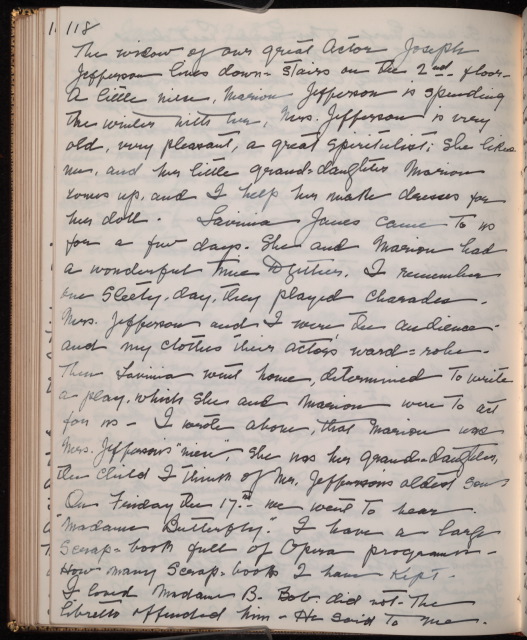 118
The widow of our great Actor Joseph
Jefferson lives down-stairs on the 2nd floor-
A little niece, Marion Jefferson is spending
the winter with her, Mrs. Jefferson is very
old, very pleasant, a great spiritulist; She likes
me, and her little grand-daughter Marion
comes up, and I help her make dresses for
her doll. Lavinia Janes came to us
for a few days. She and Marion had
a wonderful time together. I remember
one sleety, day, they played charades.
Mrs. Jefferson and I were the audience-
and my clothes their actors ward=robe-
Then Lavinia went home, determined to write
a play, which she and Marion were to act
for us- I wrote above, that Marion was
Mrs. Jefferson's "niece", She was her grand-daughter,
the child I think of Mr. Jefferson's oldest son
On Friday the 17th we went to hear
"Madame Butterfly". I have a large
Scrap-book full of Opera programs-
How many Scrap-books I have Kept-
I loved Madame B. Bob did not- The
libretto offended him- He said to me.